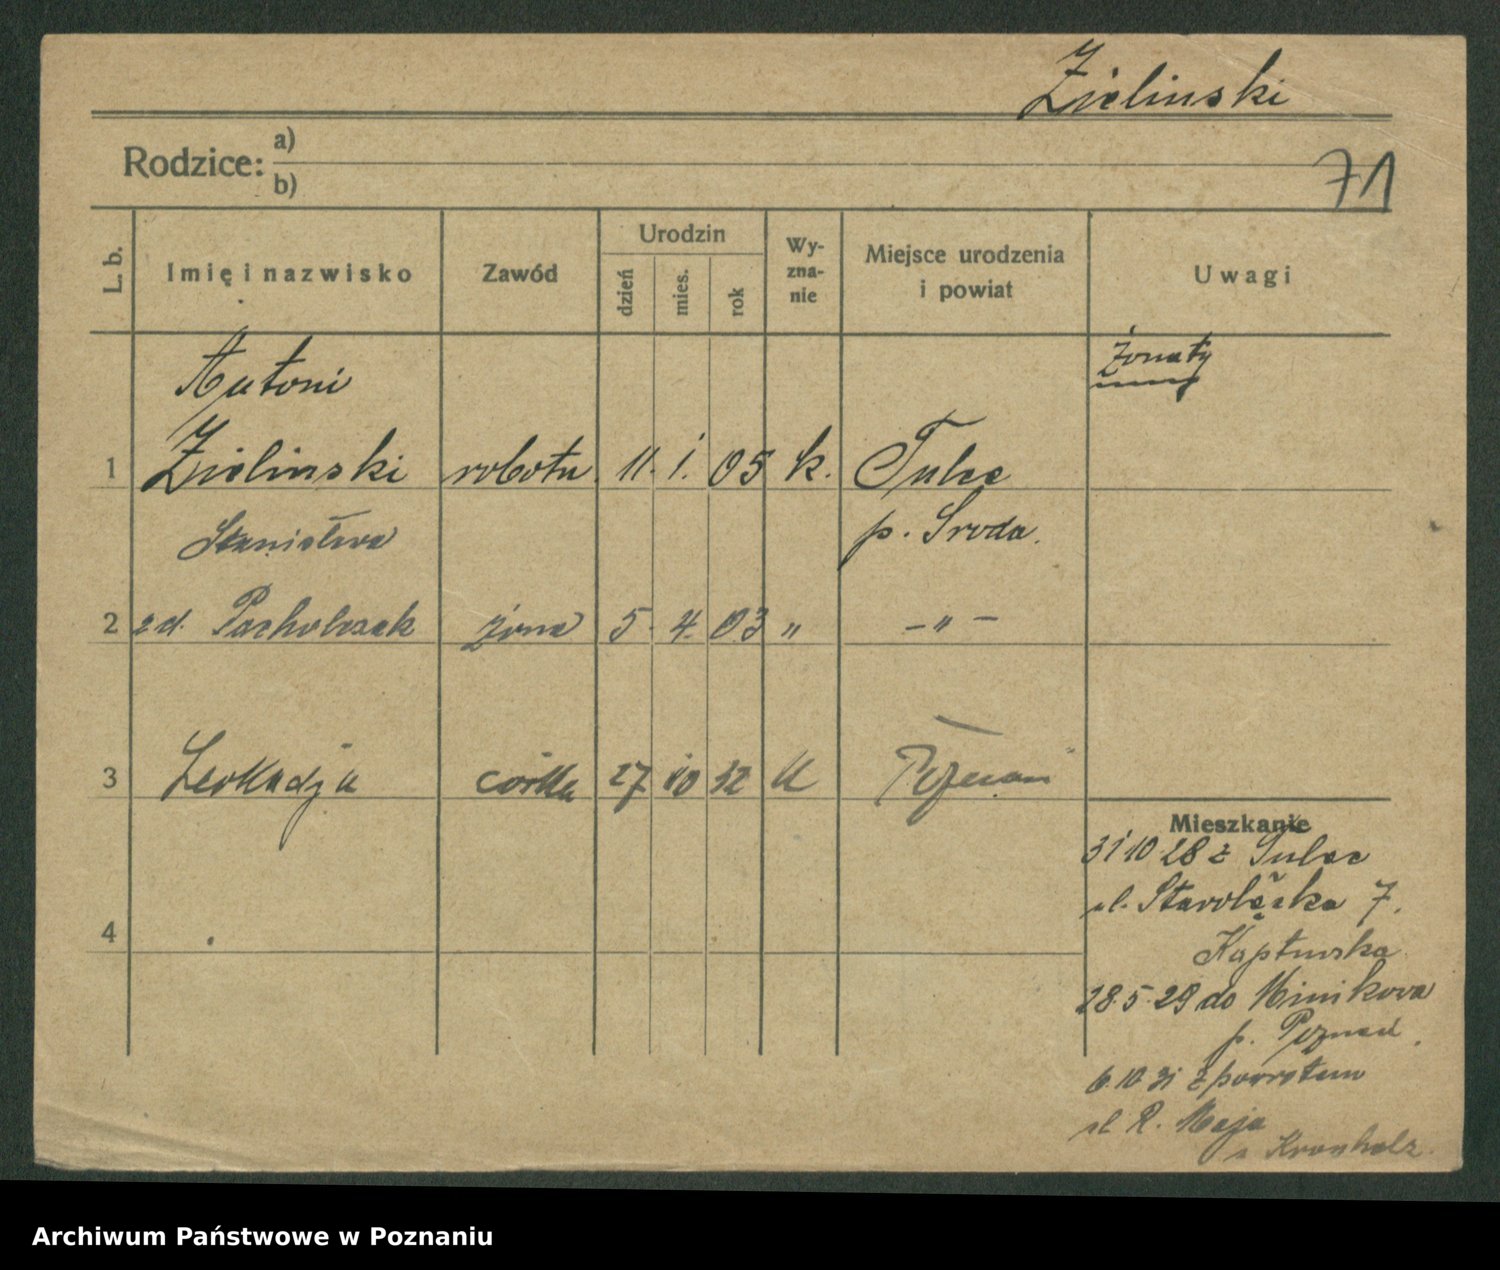 Zielinski
Rodzice: a)
b)
71
L. b. Imię i nazwisko Zawód Urodzin dzień mies. rok Wy-zna-nie Miejsce urodzenia i powiat Uwagi
Antoni żonaty
1 Zielinski robotn. 11. 1. 05 k. Tulce
Stanisława p. Sroda.
2 zd. Pacholczak żona 5. 4. 03 " - " -
3 Leokadja córka 27 10 32 k Poznań
Mieszkanie
31 10 28 z Tulec
ul. Starołęcka 7.
4
28.5.29 do Minikowa
p. Poznań.
6.10.31 z powrotem
ul. R. Maja
Archiwum Państwowe w Poznaniu